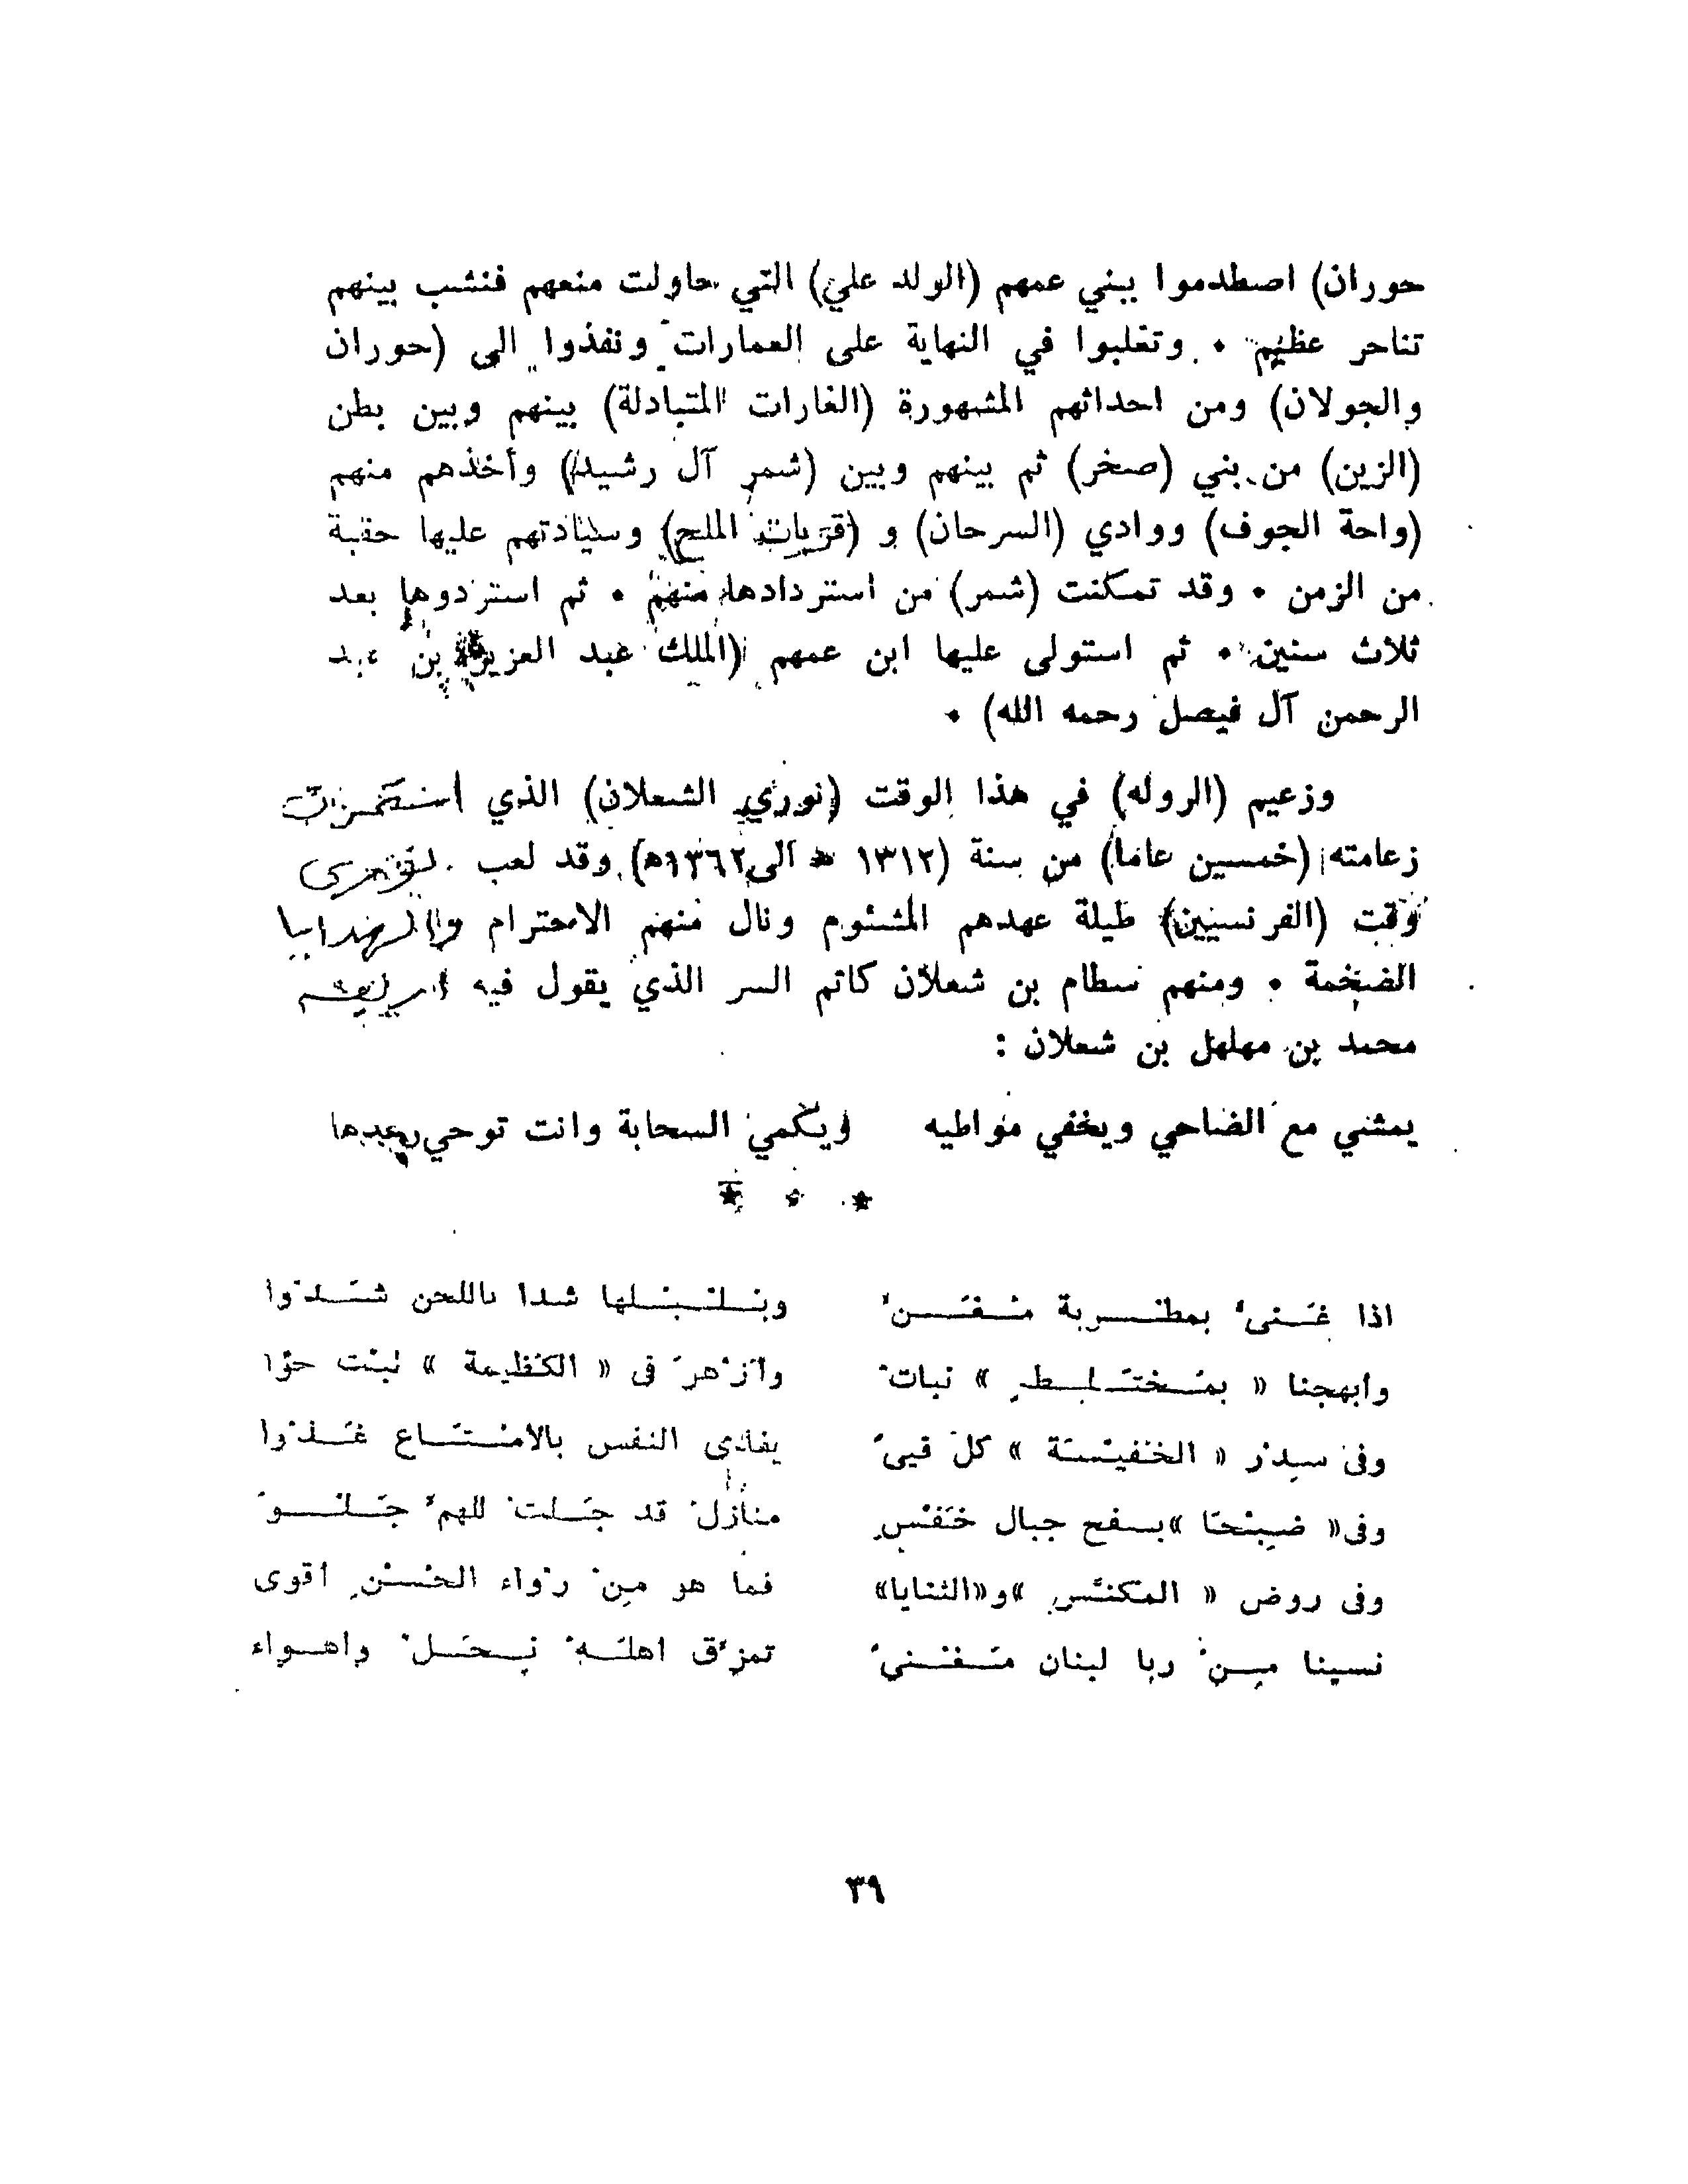 حوران) اصطدموا ببني عمهم (الولد علي) التي حاولت منعهم فنشب بينهم
تناحر عظيم • وتغلبوا في النهاية على العمارات ونفذوا الى (حوران
والجولان) ومن احداثهم المشهورة (الغارات المتبادلة) بينهم وبين بطن
(الزين) من بني (صخر) ثم بينهم وبين (شمر آل رشيد) وأخذهم منهم
(واحة الجوف) ووادي (السرحان) و (قريات الملح) وسيادتهم عليها حقبة
من الزمن • وقد تمكنت (شمر) من استردادها منهم • ثم استردوها بعد
ثلاث سنين • ثم استولى عليها ابن عمهم (الملك عبد العزيز بن عبد
الرحمن آل فيصل رحمه الله) •
وزعيم (الروله) في هذا الوقت (نوري الشعلان) الذي استمرت
زعامته (خمسين عاما) من سنة (١٣١٢ هـ الى ١٣٦٢هـ) وقد لعب
وقت (الفرنسيين) طيلة عهدهم المشئوم ونال منهم الاحترام والهدايا
الضخمة • ومنهم سطام بن شعلان كاتم السر الذي يقول فيه
محمد بن مهلهل بن شعلان :
يمشي مع الضاحي ويخفي مواطيه ويكمي السحابة وانت توحي رعدها
* * *
اذا غَنىّ بمطربة مُغَنّ وبُلْبُلها شدا باللحن شَدْوا
وأبهجنا « بمُختَلِطِ » نباتْ وأزْهرَ في « الكَظيمة » نَبْت حوّا
وفى سِدْر « الخَفيْسَة » كلّ فيىّ يفادى النفس بالامْتَاع غَذْوا
وفى« ضَبْحَا »بسفح جبال خَفْسِ منازلْ قد جَلتْ للهمّ جَلْوَ
وفى روض « المَكنّسِ »و«الثنايا» فما هو مِنْ رُواء الحُسْنِ أقوى
نسينا مِنْ ربا لبنان مَغْنىّ تمزّق أهلَهْ نِحَلْ وأهواء
٣٩